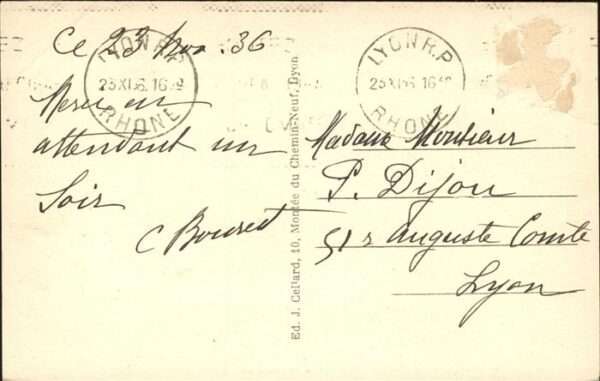 Ce 23 Nov. 36
Merci en
attendant un
Soir
C Bouret
LYON R.P
23 XI 36 1630
RHONE
LYON R.P
23 XI 36 1630
RHONE
Ed. J. Cellard, 10, Montée du Chemin-Neuf, Lyon
Madame Monsieur
P. Dijou
51 r Auguste Comte
Lyon